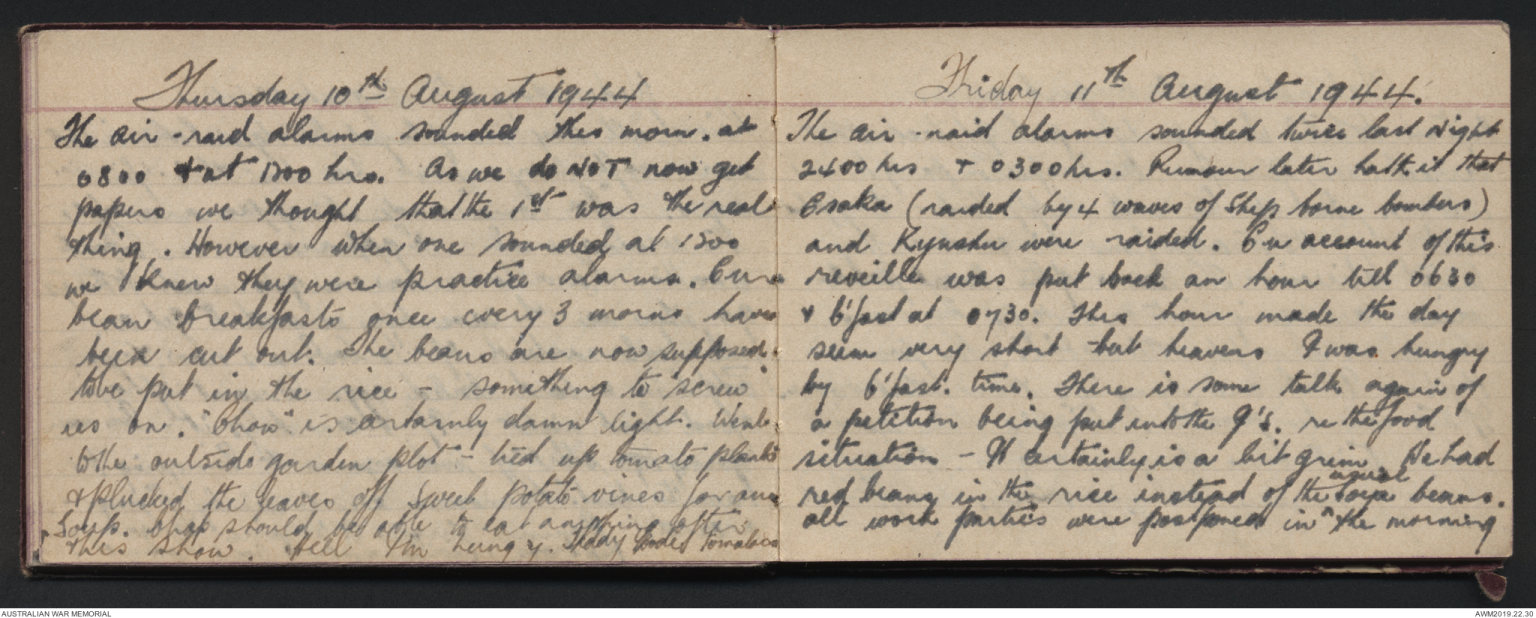 Thursday 10th August 1944
The air-raid alarms sounded this morn. at
0800 & at 1200 hrs. As we do NOT now get
papers we thought that the 1st was the real
thing. However when one sounded at 1200
we knew they were practice alarms. Our
bean breakfasts once every 3 morns have
been cut out. The beans are now supposed
to be put in the rice - something to screw
us on. "Chow" is certainly damn light. Went
to the outside garden plot - tied up tomato plants
& plucked the leaves off sweet potato vines for our
soup. Chaps should be able to eat anything after
this show. Hell I'm hungry. tomatoes
Friday 11th August 1944.
The air-raid alarms sounded twice last night
2400 hrs & 0300 hrs. Rumour later hath it that
Osaka (raided by 4 waves of ship borne bombers)
and Kyushu were raided. On account of this
reveille was put back an hour till 0630
& b'fast at 0730. This hour made the day
seem very short - but heavens I was hungry
by b'fast. time. There is some talk again of
a petition being put into the J's. re the food
situation - It certainly is a bit grim. We had
red beans in the rice instead of the usual soya beans.
All work parties were postponed in the morning
AUSTRALIAN WAR MEMORIAL
AWM2019.22.30